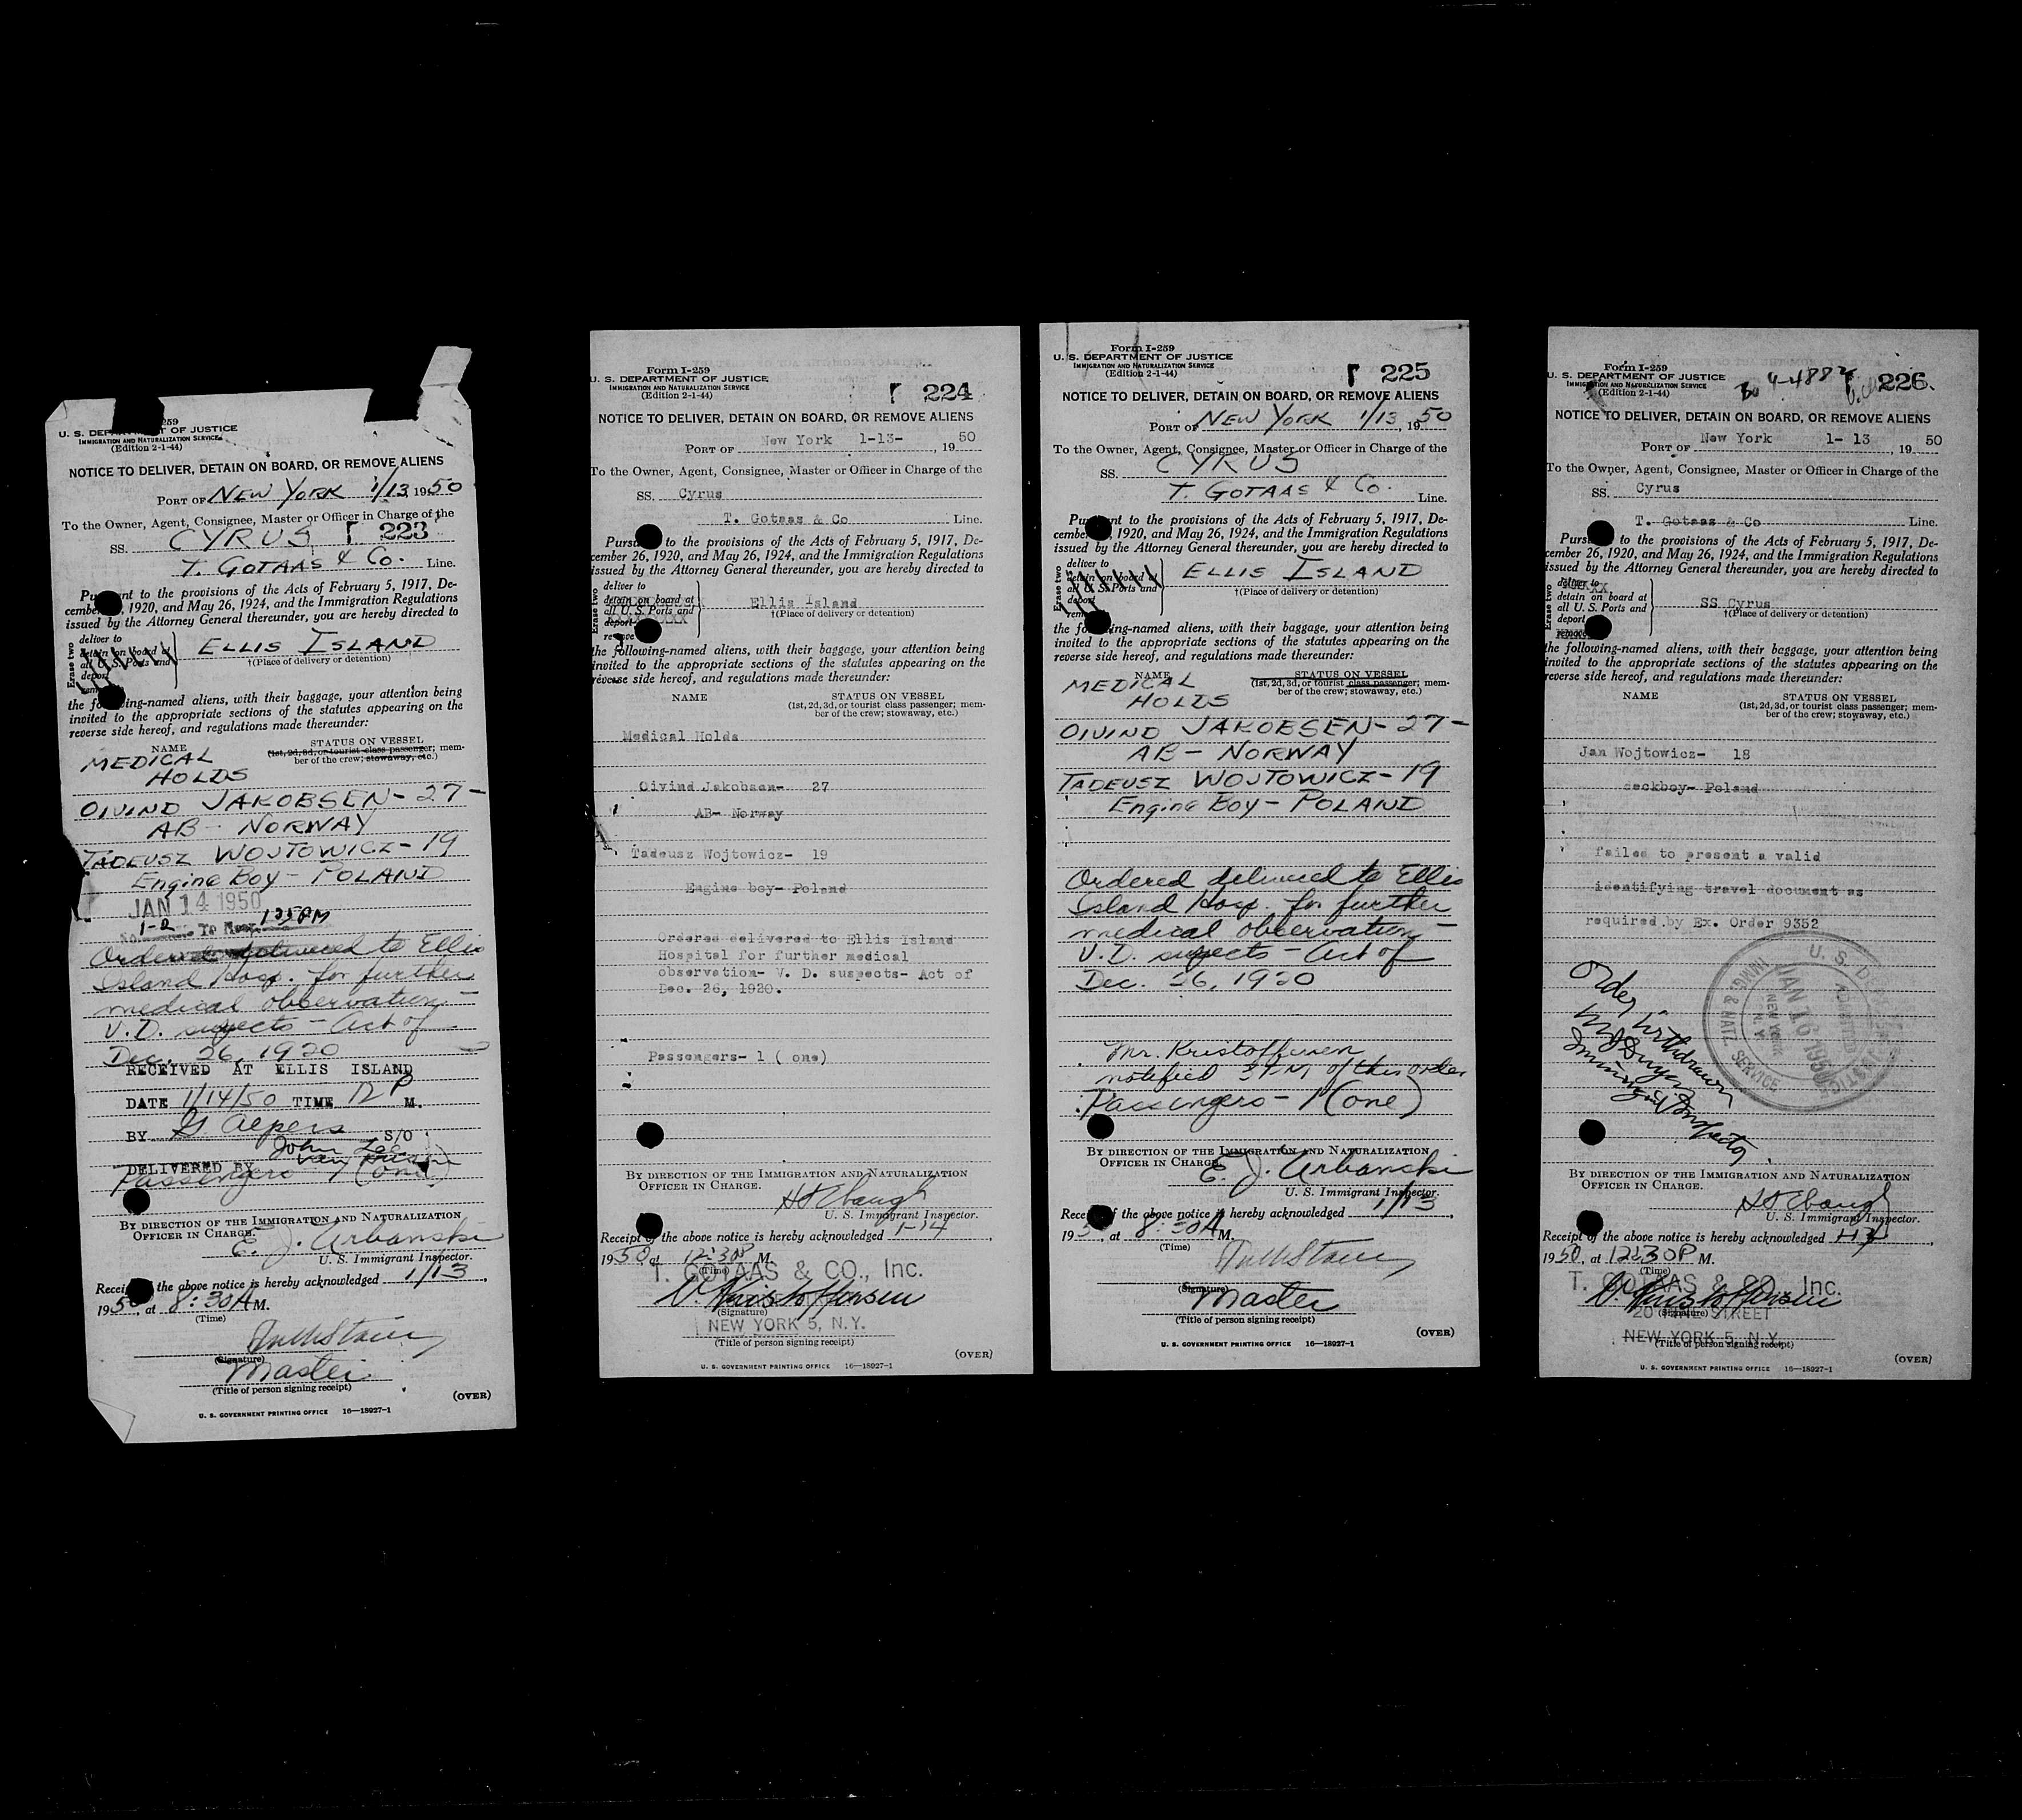 259
U. S. DEPARTMENT OF JUSTICE
IMMIGRATION AND NATURALIZATION SERVICE
(Edition 2-1-44)
NOTICE TO DELIVER, DETAIN ON BOARD, OR REMOVE ALIENS
PORT OF NEW YORK 1/13, 1950
To the Owner, Agent, Consignee, Master or Officer in Charge of the
SS. CYRUS 223
T. GOTAAS & Co. Line.
Pursuant to the provisions of the Acts of February 5, 1917, De-
cember 1920, and May 26, 1924, and the Immigration Regulations
issued by the Attorney General thereunder, you are hereby directed to
Erase two
deliver to
detain on board at
all U. S. Ports and
deport
ELLIS ISLAND
†(Place of delivery or detention)
the following-named aliens, with their baggage, your attention being
invited to the appropriate sections of the statutes appearing on the
reverse side hereof, and regulations made thereunder:
NAME STATUS ON VESSEL
(1st, 2d, 3d, or tourist class passenger; mem-
ber of the crew; stowaway, etc.)
MEDICAL
HOLDS
OIVIND JAKOBSEN - 27 -
AB - NORWAY
TADEUSZ WOJTOWICZ - 19
Engine Boy - POLAND
JAN 14 1950
1-2
Ordered delivered to Ellis
Island Hosp. for further
medical observation -
V.D. suspects - Act of
Dec. 26, 1920
RECEIVED AT ELLIS ISLAND
DATE 1/14/50 TIME 12 P M.
BY G Alpers S/O
John
DELIVERED BY
Passengers - 1 (one)
BY DIRECTION OF THE IMMIGRATION AND NATURALIZATION
OFFICER IN CHARGE.
E. J. Urbanski
U. S. Immigrant Inspector.
Receipt of the above notice is hereby acknowledged 1/13,
1950, at 8:30 A M.
(Time)
(Signature)
Master
(Title of person signing receipt)
(OVER)
U. S. GOVERNMENT PRINTING OFFICE 16—18927-1
Form I-259
U. S. DEPARTMENT OF JUSTICE
IMMIGRATION AND NATURALIZATION SERVICE
(Edition 2-1-44)
224
NOTICE TO DELIVER, DETAIN ON BOARD, OR REMOVE ALIENS
PORT OF New York 1-13-, 1950
To the Owner, Agent, Consignee, Master or Officer in Charge of the
SS. Cyrus
T. Gotaas & Co Line.
Pursuant to the provisions of the Acts of February 5, 1917, De-
cember 26, 1920, and May 26, 1924, and the Immigration Regulations
issued by the Attorney General thereunder, you are hereby directed to
Erase two
deliver to
detain on board at
all U. S. Ports and
deport
remove
Ellis Island
†(Place of delivery or detention)
the following-named aliens, with their baggage, your attention being
invited to the appropriate sections of the statutes appearing on the
reverse side hereof, and regulations made thereunder:
NAME STATUS ON VESSEL
(1st, 2d, 3d, or tourist class passenger; mem-
ber of the crew; stowaway, etc.)
Medical Holds
Oivind Jakobsen- 27
AB- Norway
Tadeusz Wojtowicz- 19
Engine boy- Poland
Ordered delivered to Ellis Island
Hospital for further medical
observation- V. D. suspects- Act of
Dec. 26, 1920.
Passengers- 1 ( one)
BY DIRECTION OF THE IMMIGRATION AND NATURALIZATION
OFFICER IN CHARGE.
U. S. Immigrant Inspector.
Receipt of the above notice is hereby acknowledged 1-14,
1950 at 12:30P M.
(Time)
T. GOTAAS & CO., Inc.
V. Kristoffersen
(Signature)
NEW YORK 5, N.Y.
(Title of person signing receipt)
(OVER)
U. S. GOVERNMENT PRINTING OFFICE 16—18927-1
Form I-259
U. S. DEPARTMENT OF JUSTICE
IMMIGRATION AND NATURALIZATION SERVICE
(Edition 2-1-44)
225
NOTICE TO DELIVER, DETAIN ON BOARD, OR REMOVE ALIENS
PORT OF NEW YORK 1/13, 1950
To the Owner, Agent, Consignee, Master or Officer in Charge of the
SS. CYRUS
T. GOTAAS & Co. Line.
Pursuant to the provisions of the Acts of February 5, 1917, De-
cember 1920, and May 26, 1924, and the Immigration Regulations
issued by the Attorney General thereunder, you are hereby directed to
Erase two
deliver to
detain on board at
all U. S. Ports and
ELLIS ISLAND
†(Place of delivery or detention)
the following-named aliens, with their baggage, your attention being
invited to the appropriate sections of the statutes appearing on the
reverse side hereof, and regulations made thereunder:
NAME STATUS ON VESSEL
(1st, 2d, 3d, or tourist class passenger; mem-
ber of the crew; stowaway, etc.)
MEDICAL
HOLDS
OIVIND JAKOBSEN - 27 -
AB - NORWAY
TADEUSZ WOJTOWICZ - 19
Engine Boy - POLAND
Ordered delivered to Ellis
Island Hosp. for further
medical observation -
V.D. suspects - Act of
Dec. 26, 1920
Mr. Kristoffersen
notified of this order
Passengers - 1 (one)
BY DIRECTION OF THE IMMIGRATION AND NATURALIZATION
OFFICER IN CHARGE.
E. J. Urbanski
U. S. Immigrant Inspector.
Receipt of the above notice is hereby acknowledged 1/13,
195, at 8:30 A M.
(Time)
(Signature)
Master
(Title of person signing receipt)
(OVER)
U. S. GOVERNMENT PRINTING OFFICE 16—18927-1
Form I-259
U. S. DEPARTMENT OF JUSTICE
IMMIGRATION AND NATURALIZATION SERVICE
(Edition 2-1-44)
4-4882
226
NOTICE TO DELIVER, DETAIN ON BOARD, OR REMOVE ALIENS
PORT OF New York 1- 13, 1950
To the Owner, Agent, Consignee, Master or Officer in Charge of the
SS. Cyrus
T. Gotaas & Co Line.
Pursuant to the provisions of the Acts of February 5, 1917, De-
cember 26, 1920, and May 26, 1924, and the Immigration Regulations
issued by the Attorney General thereunder, you are hereby directed to
Erase two
deliver to
detain on board at
all U. S. Ports and
deport
SS Cyrus
†(Place of delivery or detention)
the following-named aliens, with their baggage, your attention being
invited to the appropriate sections of the statutes appearing on the
reverse side hereof, and regulations made thereunder:
NAME STATUS ON VESSEL
(1st, 2d, 3d, or tourist class passenger; mem-
ber of the crew; stowaway, etc.)
Jan Wojtowicz- 18
deckboy- Poland
failed to present a valid
identifying travel document as
required by Ex. Order 9352
Order Withdrawn
Immigrant Inspector
U. S. DEPT. OF JUSTICE
ADMITTED
JAN 16 1950
NEW YORK
N.Y.
IMMIG. & NATZ. SERVICE
BY DIRECTION OF THE IMMIGRATION AND NATURALIZATION
OFFICER IN CHARGE.
U. S. Immigrant Inspector.
Receipt of the above notice is hereby acknowledged
1950, at 12:30P M.
(Time)
T. GOTAAS & CO., Inc.
V. Kristoffersen
(Signature)
STREET
NEW YORK 5, N.Y.
(Title of person signing receipt)
(OVER)
U. S. GOVERNMENT PRINTING OFFICE 16—18927-1